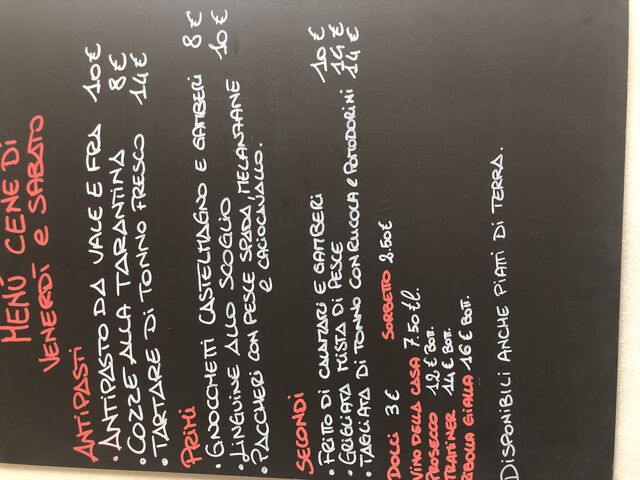 MENÙ CENE DI
VENERDÌ e SABATO
ANTIPASTI
• ANTIPASTO DA VALE E FRA 10€
• COZZE ALLA TARANTINA 8€
• TARTARE DI TONNO FRESCO 14€
PRIMI
• GNOCCHETTI CASTELMAGNO E GAMBERI 8€
• LINGUINE ALLO SCOGLIO 10€
• PACCHERI CON PESCE SPADA, MELANZANE
E CACIOCAVALLO.
SECONDI
• FRITTO DI CALAMARI E GAMBERI 10€
• GRIGLIATA MISTA DI PESCE 14€
• TAGLIATA DI TONNO CON RUCOLA E POMODORINI 14€
DOLCI 3€ SORBETTO 2.50€
VINO DELLA CASA 7.50 €l.
PROSECCO 12€ BOTT.
TRAMINER 14€ BOTT.
RIBOLLA GIALLA 16€ BOTT.
DISPONIBILI ANCHE PIATTI DI TERRA.